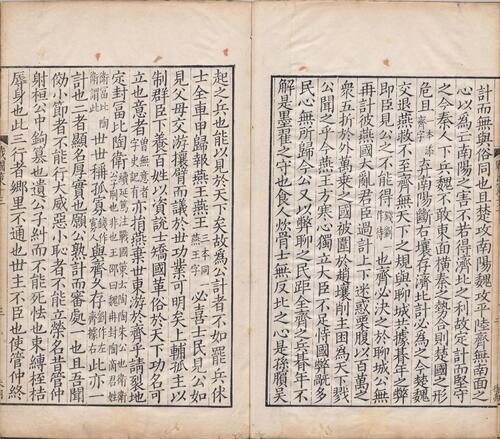 計而無與俗同也且楚攻南陽魏攻平陸齊無南面之
心以為亡南陽之害不若得濟北之利故定計而堅守
之今秦人下兵魏不敢東面橫秦之勢合則楚國之形
危且棄南陽斷右壤存濟北計必為之今楚魏
交退燕救不至齊無天下之規與聊城共據朞年之弊
即臣見公之不能得也齊必決之於聊城公無
再計彼燕國大亂君臣過計上下迷惑栗腹以百萬之
衆五折於外萬乘之國被圍於趙壤削主困為天下戮
公聞之乎今燕王方寒心獨立大臣不足恃國弊多
民心無所歸今公又以弊聊之民距全齊之兵朞年不
解是墨翟之守也食人炊骨士無反北之心是孫臏吳
起之兵也能以見於天下矣故為公計者不如罷兵休
士全車甲歸報燕王燕王三本同燕王字必喜士民見公如
見父母交游攘臂而議於世功業可明矣上輔孤主以
制群臣下養百姓以資說士矯國革俗於天下功名可
立也意者曾無意者字史記有亦捐燕棄世東游於齊乎請裂地
定封富比陶衛
世世稱孤寡與齊久存此亦一
計也二者顯名厚實也願公熟計而審處一也且吾聞
傚小節者不能行大威惡小恥者不能立榮名昔管仲
射桓公中鉤篡也遺公子糾而不能死怯也束縛桎梏
辱身也此三行者鄉里不通也世主不臣也使管仲終